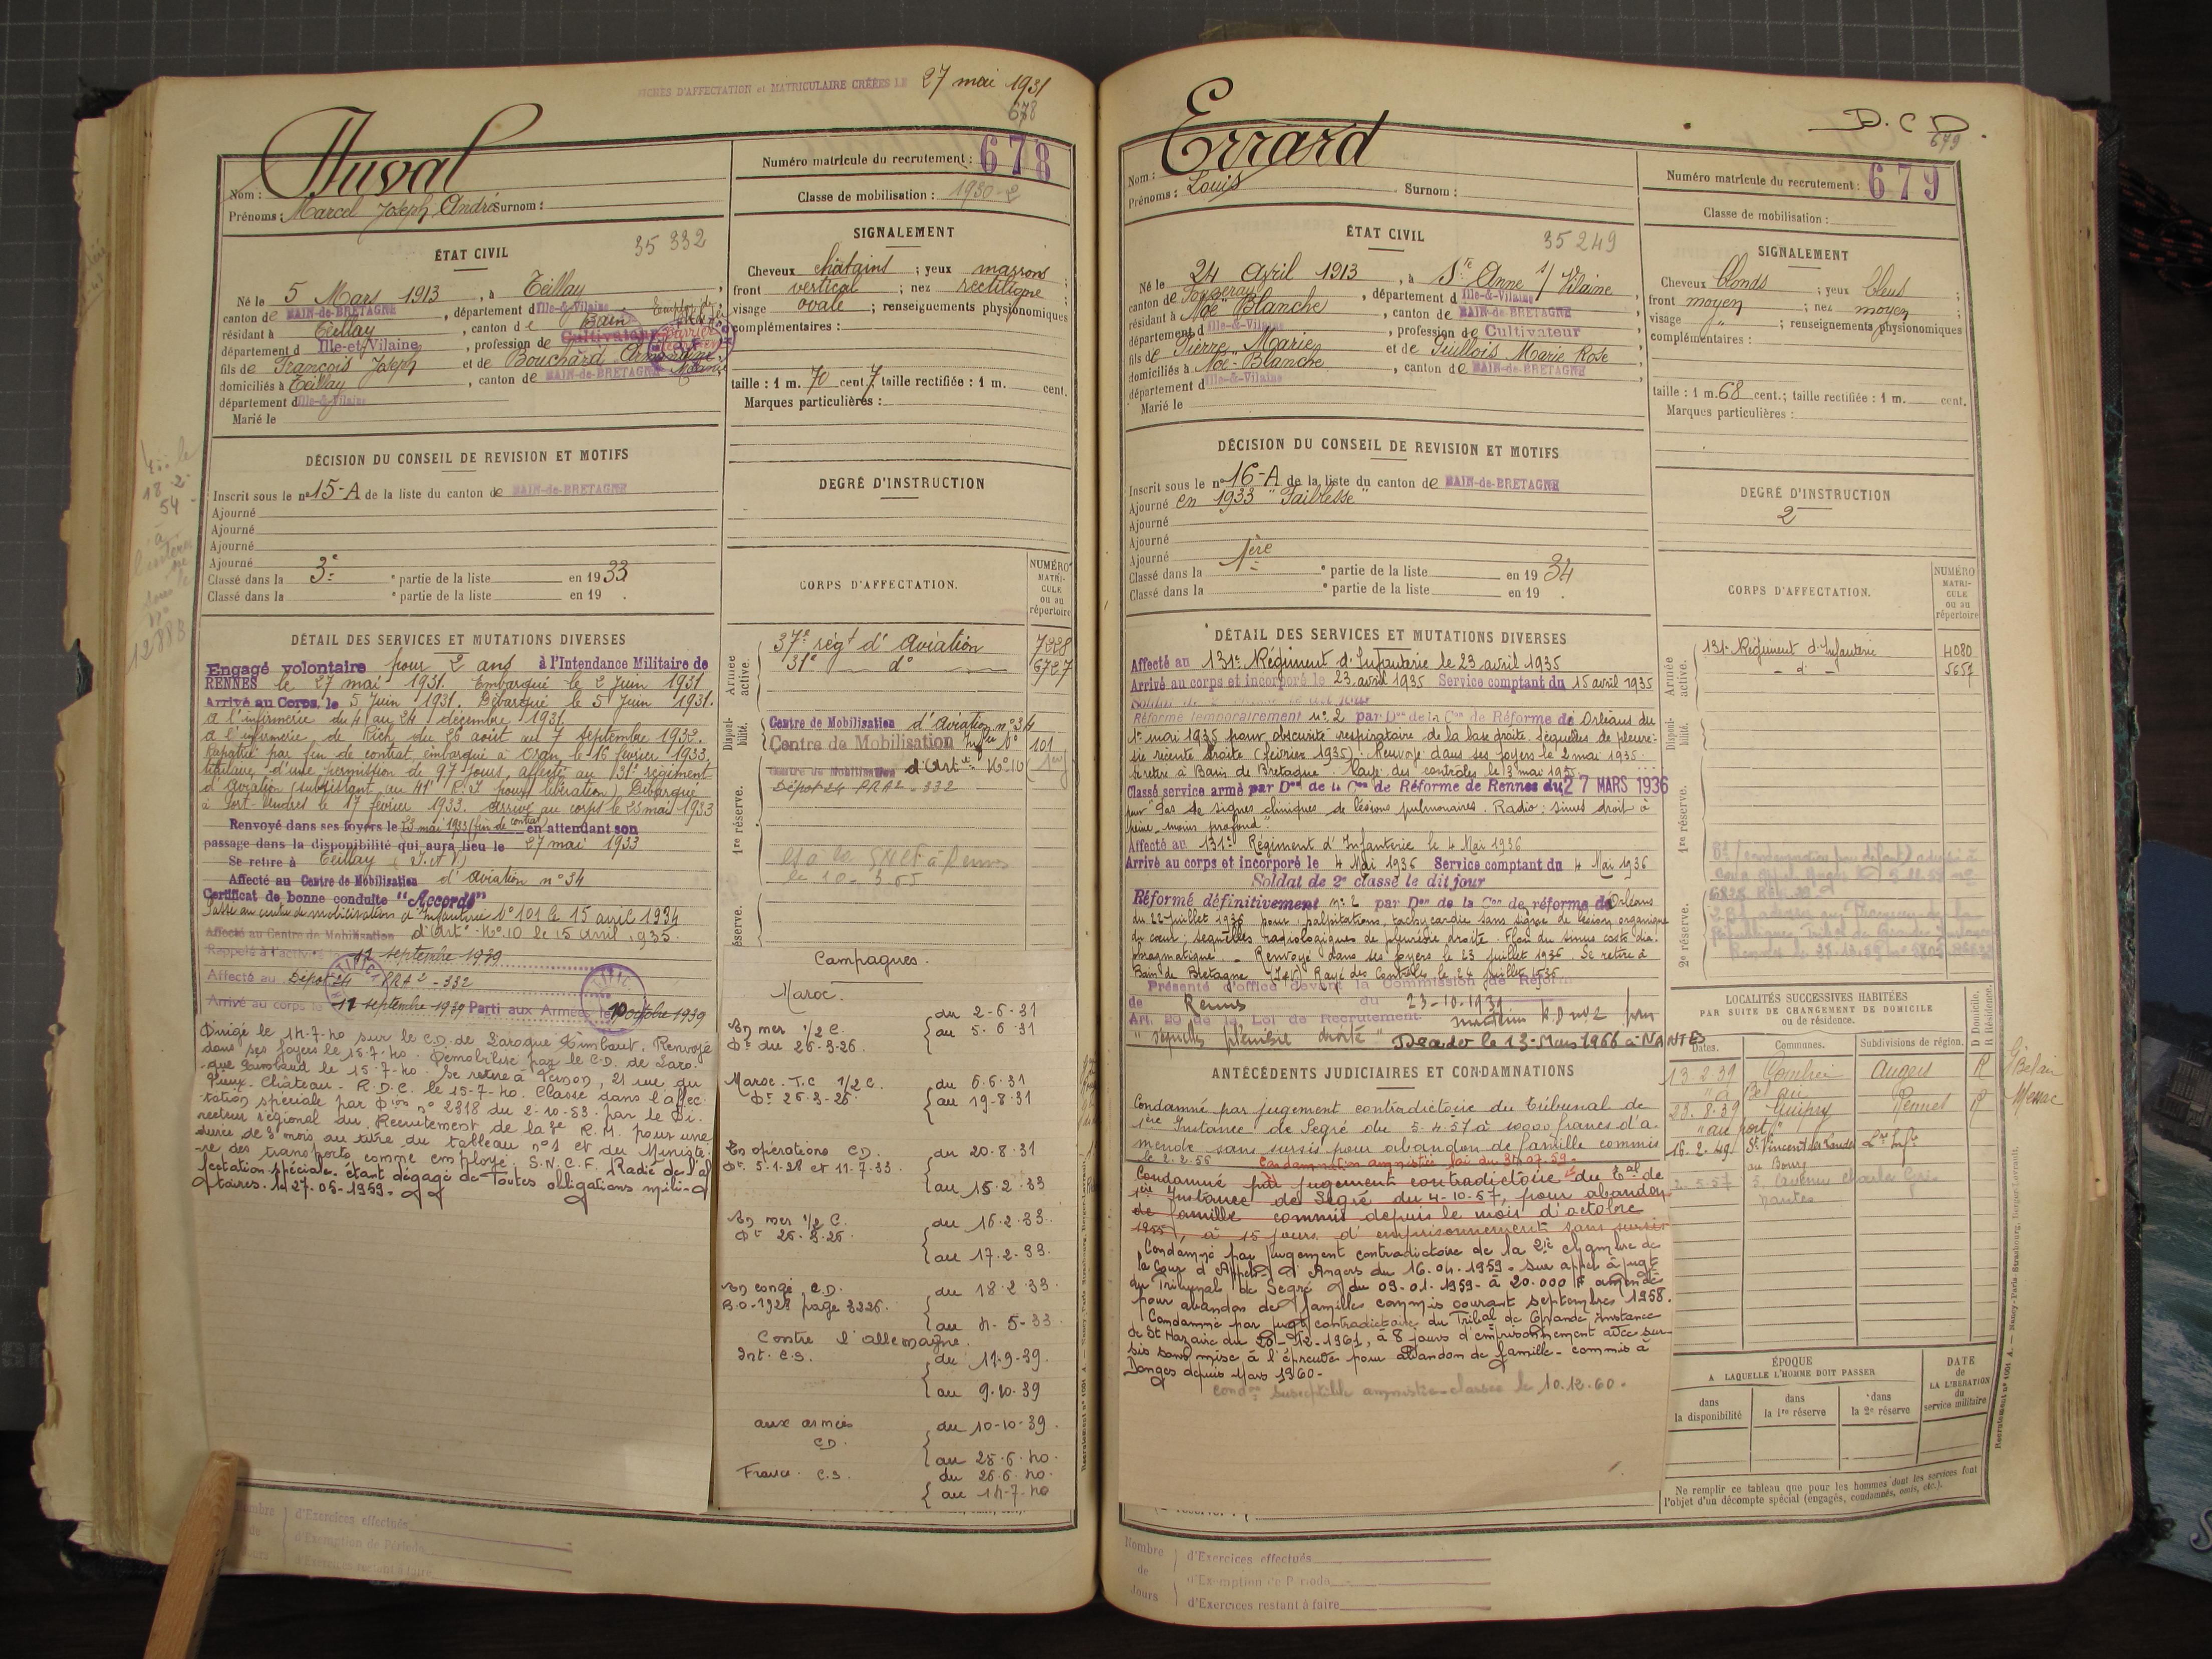 FICHES D'AFFECTATION et MATRICULAIRE CRÉÉES LE 27 mai 1931
678
Nom : Duval
Prénoms : Marcel Joseph André Surnom :
Numéro matricule du recrutement : 678
Classe de mobilisation : 1930-2
ÉTAT CIVIL
35 332
Né le 5 Mars 1913, à Teillay
canton de BAIN-de-BRETAGNE, département d Ille-&-Vilaine
résidant à Teillay, canton de Bain
département d Ille-et-Vilaine, profession de Cultivateur
fils de François Joseph et de Bouchard Armandine
domiciliés à Teillay, canton de BAIN-de-BRETAGNE
département d Ille-&-Vilaine
Marié le
SIGNALEMENT
Cheveux châtains ; yeux marrons ;
front vertical ; nez rectiligne ;
visage ovale ; renseignements physionomiques
complémentaires :
taille : 1 m. 70 cent 7 taille rectifiée : 1 m. cent.
Marques particulières :
DÉCISION DU CONSEIL DE REVISION ET MOTIFS
Inscrit sous le n° 15-A de la liste du canton de BAIN-de-BRETAGNE
Ajourné
Ajourné
Ajourné
Ajourné
Classé dans la 3e partie de la liste en 1933
Classé dans la e partie de la liste en 19 .
DEGRÉ D'INSTRUCTION
CORPS D'AFFECTATION.
NUMÉRO MATRICULE ou au répertoire
Armée active.
37e régt d'Aviation 7228
31e do 6727
Disponibilité.
Centre de Mobilisation d'Aviation n° 34
Centre de Mobilisation Inf N° 101
1re réserve.
Centre de Mobilisation d'Artie N° 10
Dépôt 24 RRA2-332
DÉTAIL DES SERVICES ET MUTATIONS DIVERSES
Engagé volontaire pour 2 ans à l'Intendance Militaire de
RENNES le 27 mai 1931. Embarqué le 2 Juin 1931
Arrivé au Corps, le 5 Juin 1931. Débarqué le 5 Juin 1931.
à l'infirmerie du 4 au 24 décembre 1931.
à l'infirmerie de Rich du 26 août au 7 septembre 1932.
Rapatrié par fin de contrat, embarqué à Oran le 16 février 1933,
titulaire d'une permission de 97 jours, affecté au 131e régiment
d'Aviation (subsistant au 41e R.I pour libération) Débarqué
à Port-Vendres le 17 février 1933. Arrivé au corps le 23 mai 1933
Renvoyé dans ses foyers le 23 mai 1933 (fin de contrat) en attendant son
passage dans la disponibilité qui aura lieu le 27 mai 1933
Se retire à Teillay (I.et V)
Affecté au Centre de Mobilisation d'Aviation n° 34
Certificat de bonne conduite "Accordé"
Passé au centre de mobilisation d'Infanterie N° 101 le 15 avril 1934
Affecté au Centre de Mobilisation d'Artie N° 10 le 15 avril 1935.
Rappelé à l'activité le 11 septembre 1939
Affecté au Dépôt 24 RRA2-332
Arrivé au corps le 11 septembre 1939 Parti aux Armées le 10 octobre 1939
Dirigé le 14-7-40 sur le C.D. de Laroque Timbaut. Renvoyé
dans ses foyers le 15-7-40. Démobilisé par le C.D. de Laro-
que Timbaud le 15-7-40. Se retire à Vernon, 21 rue du
Vieux-Château - R.D.C. le 15-7-40. Classé dans l'affec-
tation spéciale par Dion n° 2318 du 2-10-53 par le Di-
recteur régional du Recrutement de la 3e R.M. pour une
durée de 3 mois au titre du tableau n°1 et du Ministè-
re des transports comme employé S.N.C.F. Radié de l'af
fectation spéciale étant dégagé de Toutes obligations mili-
taires. le 27-05-1959-
2e réserve.
Campagnes.
Maroc.
En mer 1/2 C. du 2-6-31
Dt du 26-3-26. au 5-6-31
Maroc. T.C 1/2 C. du 6-6-31
Dt 26-3-26. au 19-8-31
En opérations C.D. du 20-8-31
Dt 5-1-28 et 11-7-33. au 15-2-33
En mer 1/2 C. du 16-2-33.
Dt 26-3-26. au 17-2-33.
En congé C.D. du 18-2-33.
B.O-1928 page 3226. au 4-5-33
Contre l'allemagne.
Int. C.S. du 11-9-39.
au 9-10-39
aux armées C.D. du 10-10-39.
au 25-6-40.
France. C.S. du 26-6-40.
au 14-7-40
Nombre de Jours
d'Exercices effectués
d'Exemption de Période
d'Exercices restant à faire
D.C D.
679
Nom : Errard
Prénoms : Louis Surnom :
Numéro matricule du recrutement : 679
Classe de mobilisation :
ÉTAT CIVIL
35 249
Né le 24 Avril 1913, à Ste Anne s/ Vilaine
canton de Fougeray, département d Ille-&-Vilaine
résidant à Noë Blanche, canton de BAIN-de-BRETAGNE
département d Ille-&-Vilaine, profession de Cultivateur
fils de Pierre Marie et de Guillois Marie Rose
domiciliés à Noë-Blanche, canton de BAIN-de-BRETAGNE
département d Ille-&-Vilaine
Marié le
SIGNALEMENT
Cheveux blonds ; yeux bleus ;
front moyen ; nez moyen ;
visage " ; renseignements physionomiques
complémentaires :
taille : 1 m. 68 cent.; taille rectifiée : 1 m. cent.
Marques particulières :
DÉCISION DU CONSEIL DE REVISION ET MOTIFS
Inscrit sous le n° 16-A de la liste du canton de BAIN-de-BRETAGNE
Ajourné en 1933 "Faiblesse"
Ajourné
Ajourné
Ajourné
Classé dans la 1ère partie de la liste en 1934
Classé dans la e partie de la liste en 19 .
DEGRÉ D'INSTRUCTION
2
CORPS D'AFFECTATION.
NUMÉRO MATRICULE ou au répertoire
Armée active.
131e Régiment d'Infanterie 4080
- d° - 5657
Disponibilité.
1re réserve.
2e réserve.
DÉTAIL DES SERVICES ET MUTATIONS DIVERSES
Affecté au 131e Régiment d'Infanterie le 23 avril 1935
Arrivé au corps et incorporé le 23 avril 1935 Service comptant du 15 avril 1935
Réformé temporairement n° 2 par Don de la Con de Réforme de Orléans du
1er mai 1935 pour obscurité respiratoire de la base droite séquelles de pleuré-
sie récente droite (février 1935). Renvoyé dans ses foyers le 2 mai 1935.
Se retire à Bain de Bretagne. Rayé des contrôles le 3 mai 1935.
Classé service armé par Don de la Con de Réforme de Rennes du 27 MARS 1936
pour "Pas de signes cliniques de lésions pulmonaires. Radio : sinus droit à
peine moins profond".
Affecté au 131e Régiment d'Infanterie le 4 Mai 1936
Arrivé au corps et incorporé le 4 Mai 1936 Service comptant du 4 Mai 1936
Soldat de 2e classe le dit jour
Réformé définitivement n° 2 par Don de la Con de réforme de Orléans
du 22 juillet 1936 pour : palpitations, tachycardie sans signe de lésion organique
du cœur ; séquelles radiologiques de pleurésie droite. Flou du sinus costo dia-
phragmatique. - Renvoyé dans ses foyers le 23 juillet 1936. Se retire à
Bain de Bretagne (I&V) Rayé des Contrôles le 24 juillet 1936
Présenté d'office devant la Commission de Réforme
de Rennes du 23-10-1939
Art. 20 de la Loi de Recrutement maintenu R.D n°2 pour
"séquelles pleurésie droite" Décédé le 13-Mars 1966 à NANTES
ANTÉCÉDENTS JUDICIAIRES ET CONDAMNATIONS
Condamné par jugement contradictoire du Tribunal de
1ère Instance de Segré du 5-4-57 à 10000 francs d'a-
mende sans sursis pour abandon de famille commis
le 2-2-56 Condamnation amnistiée loi du 31-07-59-
Condamné par jugement contradictoire du Tal de
1ère Instance de Segré du 4-10-57, pour abandon
de famille commis depuis le mois d'octobre
1955, à 15 jours d'emprisonnement sans sursis
Condamné par jugement contradictoire de la 2è chambre de
la cour d'Appel d'Angers du 16.04.1959. sur appel à jugt
du Tribunal de Segré du 09-01-1959- à 20.000 F amende
pour abandon de famille commis courant septembre 1958.
Condamné par jugt contradictoire du Tribal de Grande instance
de St Nazaire du 28-12-1961, à 8 jours d'emprisonnement avec sur-
sis sans mise à l'épreuve pour abandon de famille - commis à
Donges depuis Mars 1960-
condon susceptible amnistie classée le 10.12.60.
LOCALITÉS SUCCESSIVES HABITÉES
PAR SUITE DE CHANGEMENT DE DOMICILE
ou de résidence.
Dates. Communes. Subdivisions de région. D Domicile. R Résidence.
13 2.39 Combrée Angers R
"à Bel air"
28.8.39 Guipry Rennes R Messac
"au port"
16.2.49 St Vincent des Landes Lre Infre
au Bourg
2.5.57 3, avenue Charles
Nantes
ÉPOQUE
A LAQUELLE L'HOMME DOIT PASSER
dans la disponibilité
dans la 1re réserve
dans la 2e réserve
DATE de LA LIBÉRATION du service militaire
Ne remplir ce tableau que pour les hommes dont les services font
l'objet d'un décompte spécial (engagés, condamnés, omis, etc.).
Nombre de Jours
d'Exercices effectués
d'Exemption de Période
d'Exercices restant à faire